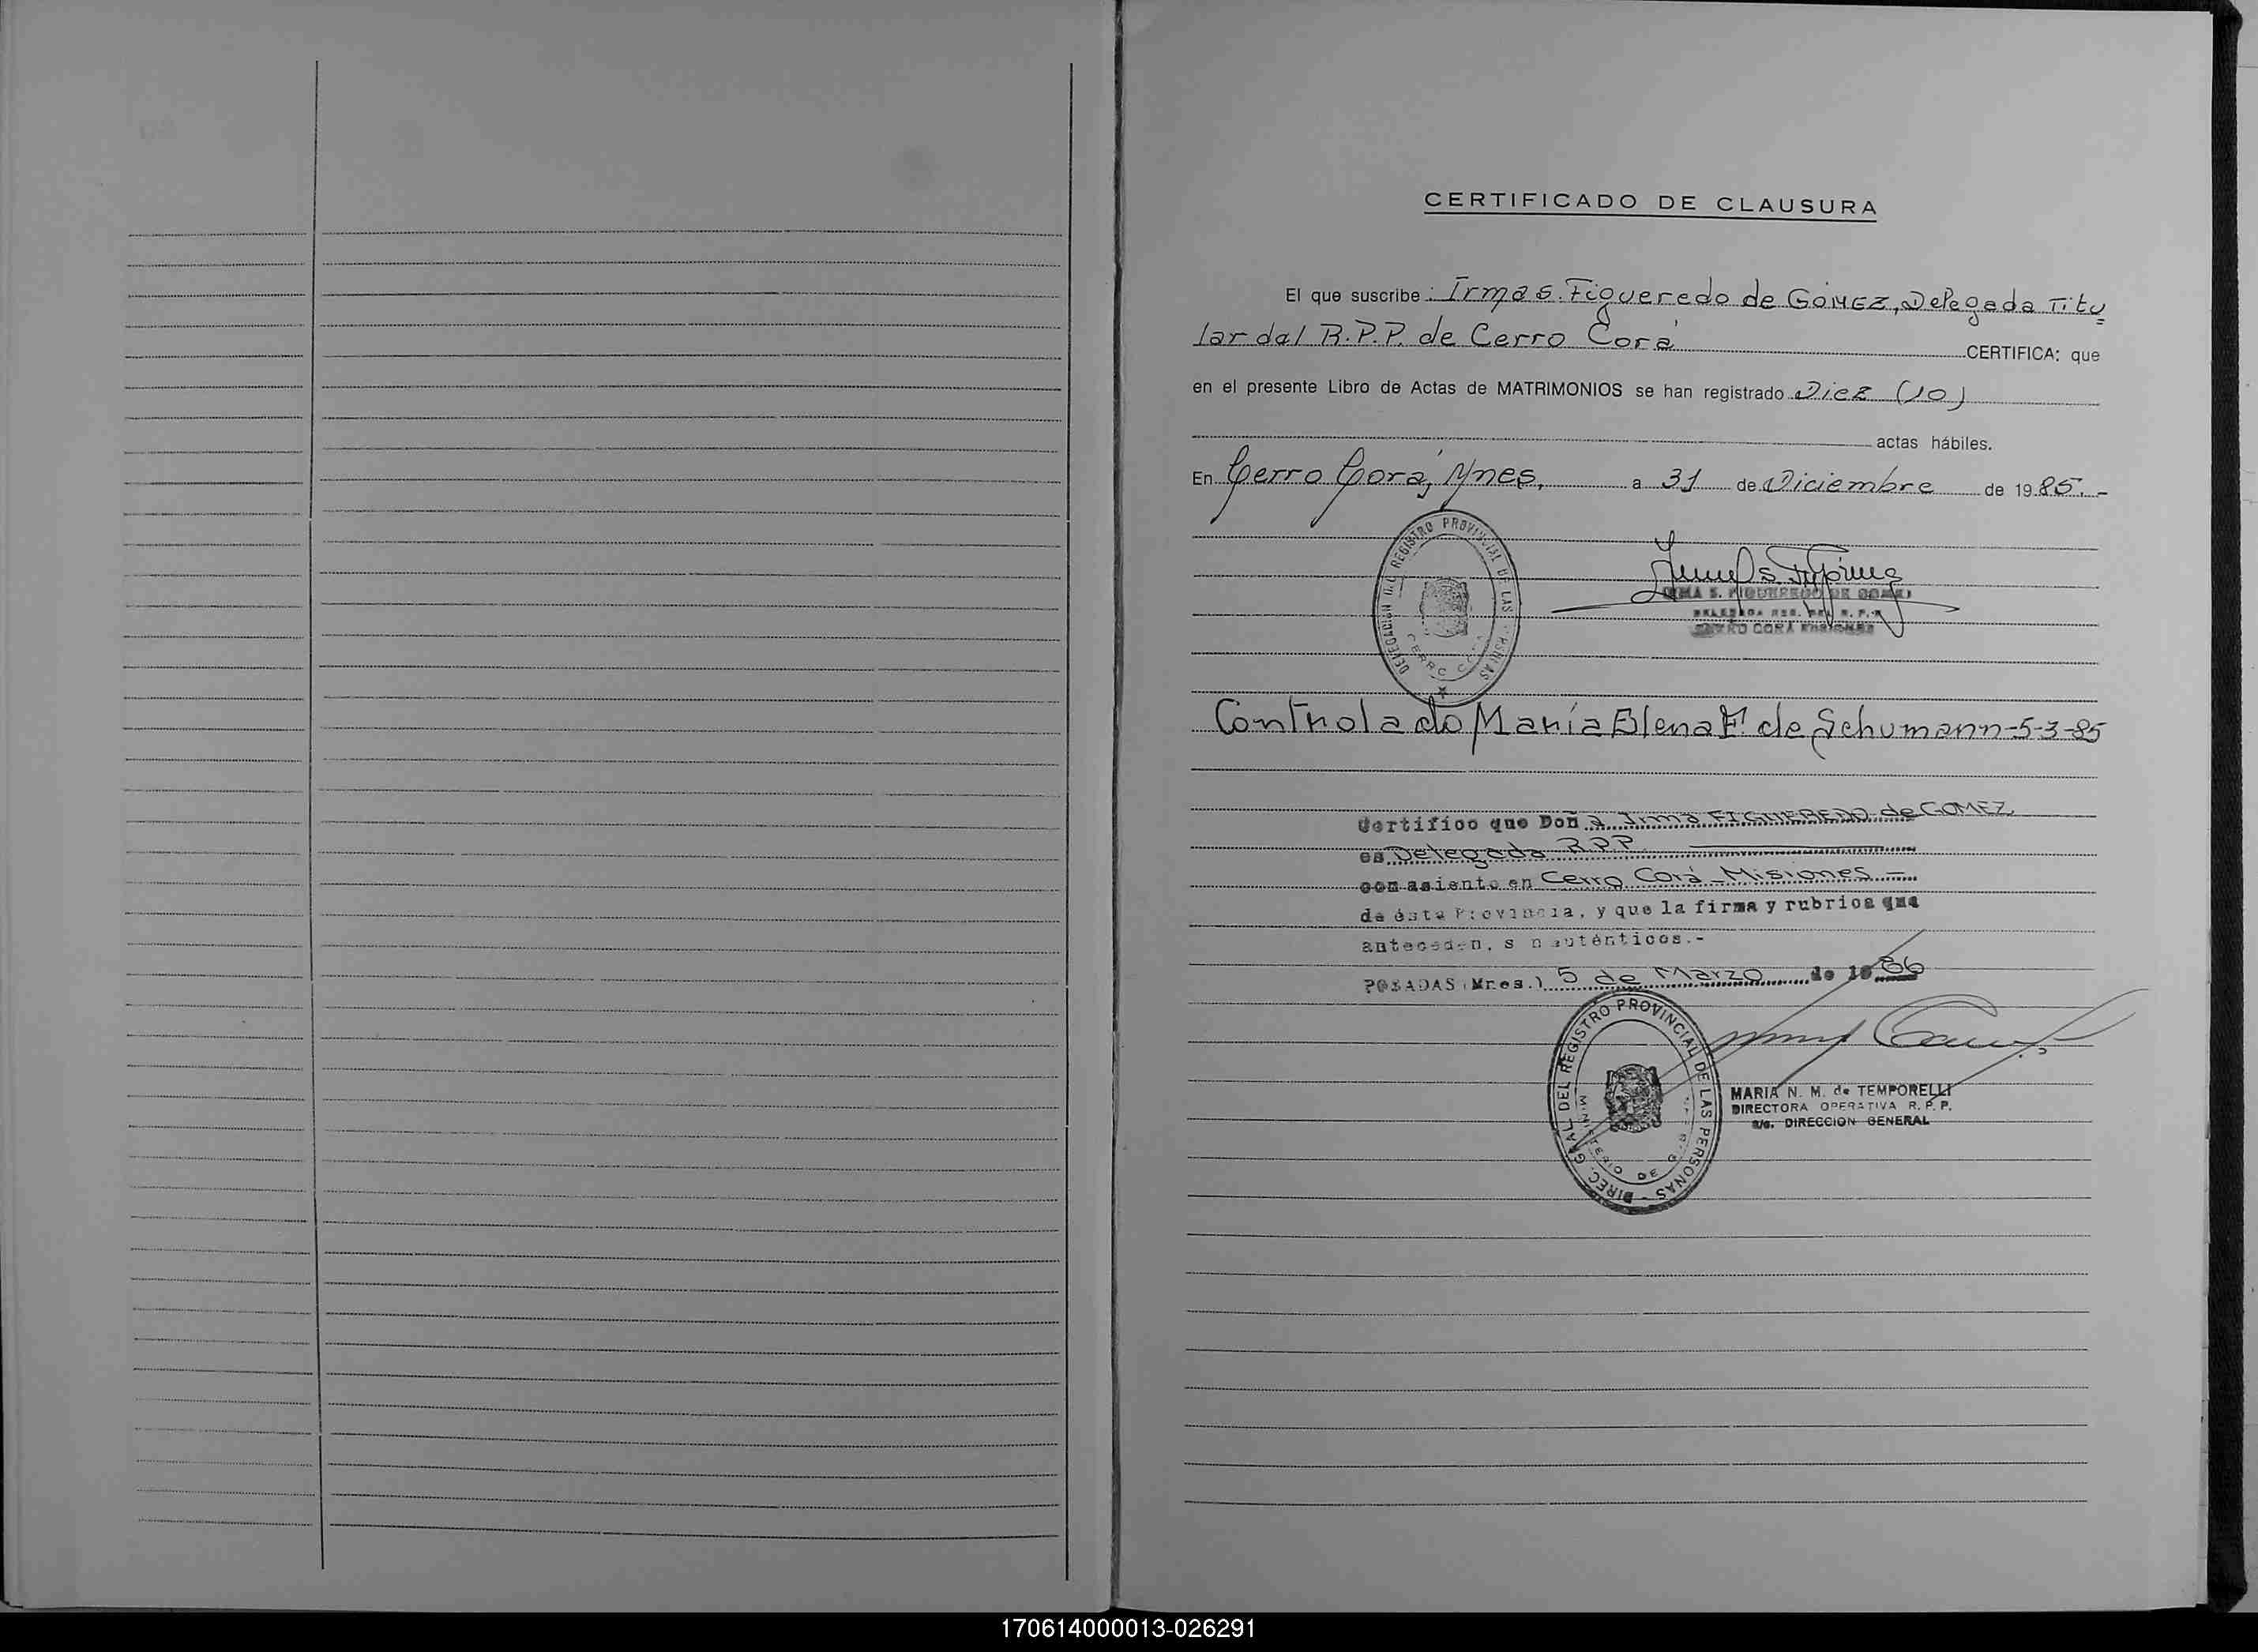 CERTIFICADO DE CLAUSURA
El que suscribe: Irma S. Figueredo de GOMEZ, Delegada Titu
lar del R.P.P. de Cerro Corá CERTIFICA: que
en el presente Libro de Actas de MATRIMONIOS se han registrado Diez (10)
actas hábiles.
En Cerro Corá, Mnes, a 31 de Diciembre de 1985.-
DELEGACION DEL REGISTRO PROVINCIAL DE LAS PERSONAS
CERRO CORA
IRMA S. FIGUEREDO DE GOMEZ
DELEGADA R.P.P.
CERRO CORA MISIONES
Controlado María Elena F. de Schumann-5-3-85
Certifico que Doña Irma FIGUEREDO de GOMEZ
es Delegada RPP
con asiento en Cerro Corá - Misiones -
de ésta Provincia, y que la firma y rubrica que
anteceden, son auténticos.-
POSADAS (Mnes.) 5 de Marzo de 1986
DIREC. GRAL DEL REGISTRO PROVINCIAL DE LAS PERSONAS
MINISTERIO DE GOB.
MARIA N. M. de TEMPORELLI
DIRECTORA OPERATIVA R. P. P.
a/c. DIRECCION GENERAL
170614000013-026291